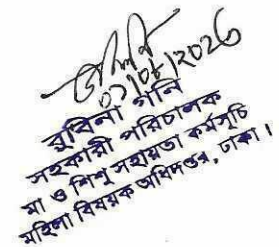 ০১/০৮/২০২৬
রুবিনা গনি
সহকারী পরিচালক
মা ও শিশু সহায়তা কর্মসূচি
মহিলা বিষয়ক অধিদপ্তর, ঢাকা।